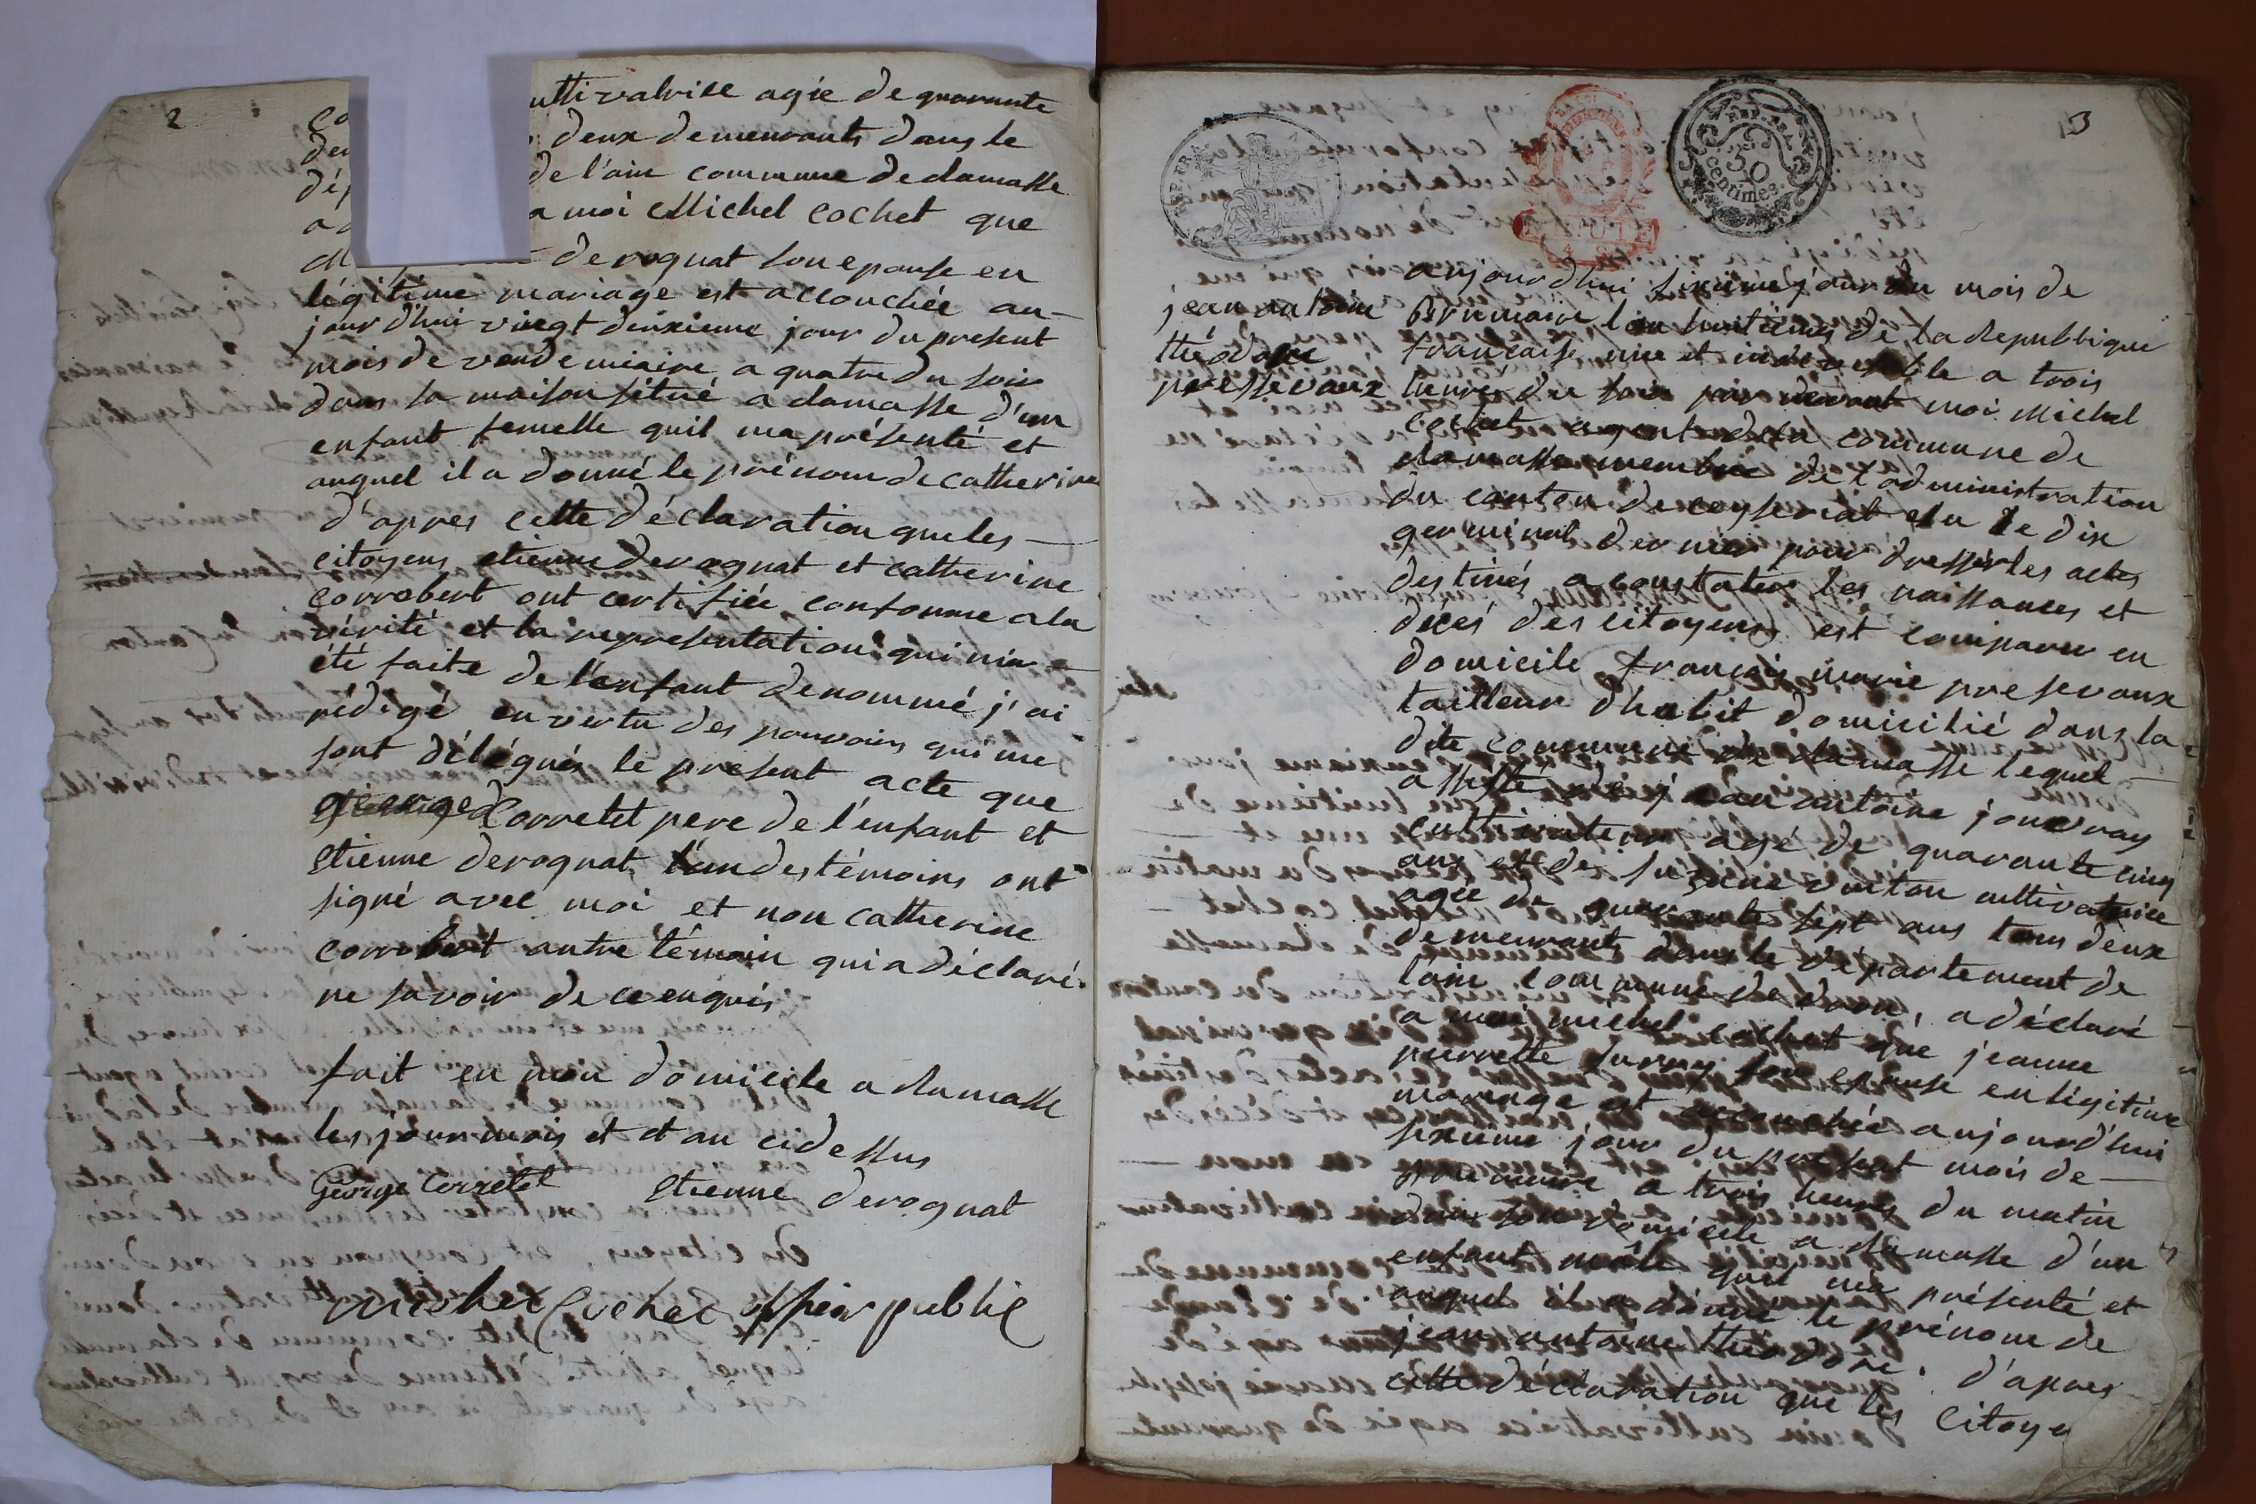 2
ultivatrice agée de quarante
deux demeurants dans le
de l'ain commune de damasse
a moi Michel cochet que
derognat son epouse en
légitime mariage est accouchée au-
jourd'hui vingt deuxieme jour du present
mois de vendemiaire a quatre du soir
dans sa maison situé a damasse d'un
enfant femelle quil ma présenté et
auquel il a donné le prénom de catherine
d'apres cette déclaration que les
citoyens etienne derognat et catherine
corrobert ont certifiée conforme a la
vérité et la representation qui m'a
été faite de l'enfant denommé j'ai
rédigé en vertu des pouvoirs qui me
sont délégués le present acte que
george Corretet pere de l'enfant et
etienne derognat l'un des témoins ont
signé avec moi et non catherine
corrobert autre témoin qui a déclaré
ne savoir de ce enquis
fait en mon domicile a damasse
les jour mois et et an cidessus
George Corretet etienne derognat
michel Cochet officier public
3
REP. FRA.
50
centimes.
jean antoine
théodore
pressevaux
aujourd'hui sixieme jour du mois de
Brumaire l'an huitieme de la Republique
francaise une et indivisible a trois
heures du soir par devant moi Michel
cochet agent de la commune de
damasse membre de l'administration
du canton de ceyseriat elu le dix
germinal dernier pour dresser les actes
destinés a constater les naissances et
décés des citoyens est comparu en
domicile francois marie presevaux
tailleur d'habit domicilié dans la
dite commune de damasse lequel
assisté de jean antoine jouvray
cultivateur agé de quarante cinq
ans et de suzanne vuiton cultivatrice
agée de quarante sept ans tous deux
demeurants dans le département de
l'ain commune de drom, a déclaré
a moi michel cochet que jeanne
pierrette surny son epouse en légitime
mariage est accouchée aujourd'hui
sixieme jour du present mois de
brumaire a trois heures du matin
dans son domicile a damasse d'un
enfant mâle quil ma présenté et
auquel il a donné le prénom de
jean antoine théodore. d'apres
cette déclaration que les citoye